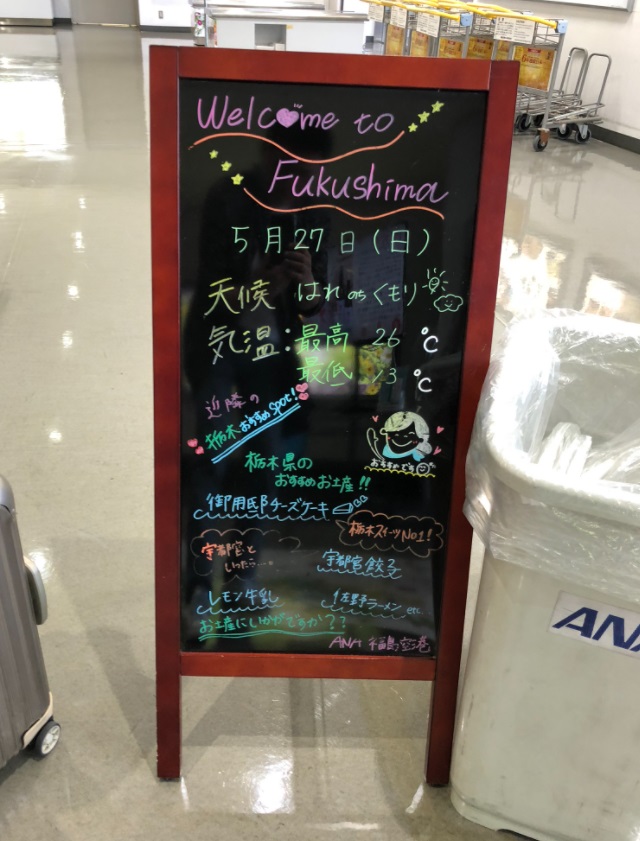 Welcome to
Fukushima
5月27日(日)
天候 はれ のち くもり
気温:最高 26 ℃
最低 13 ℃
近隣の
栃木おすすめspot!
おすすめです
栃木県の
おすすめお土産!!
御用邸チーズケーキ
栃木スイーツNo1!
宇都宮と
いったら…。
宇都宮餃子
レモン牛乳
佐野ラーメン etc.
お土産にいかがですか??
ANA 福島空港
ANA